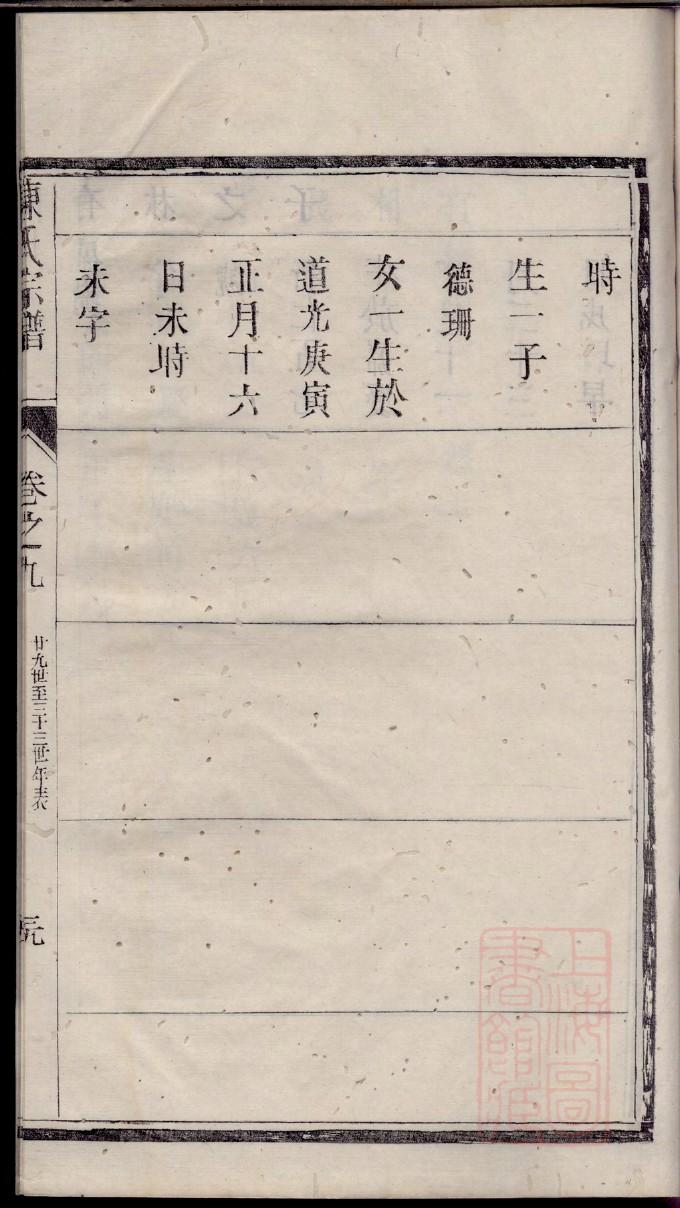 時
生一子
德珊
女一生於
道光庚寅
正月十六
日未時
未字
陳氏宗譜
卷之九
廿九世至三十三世年表
上海圖書館藏